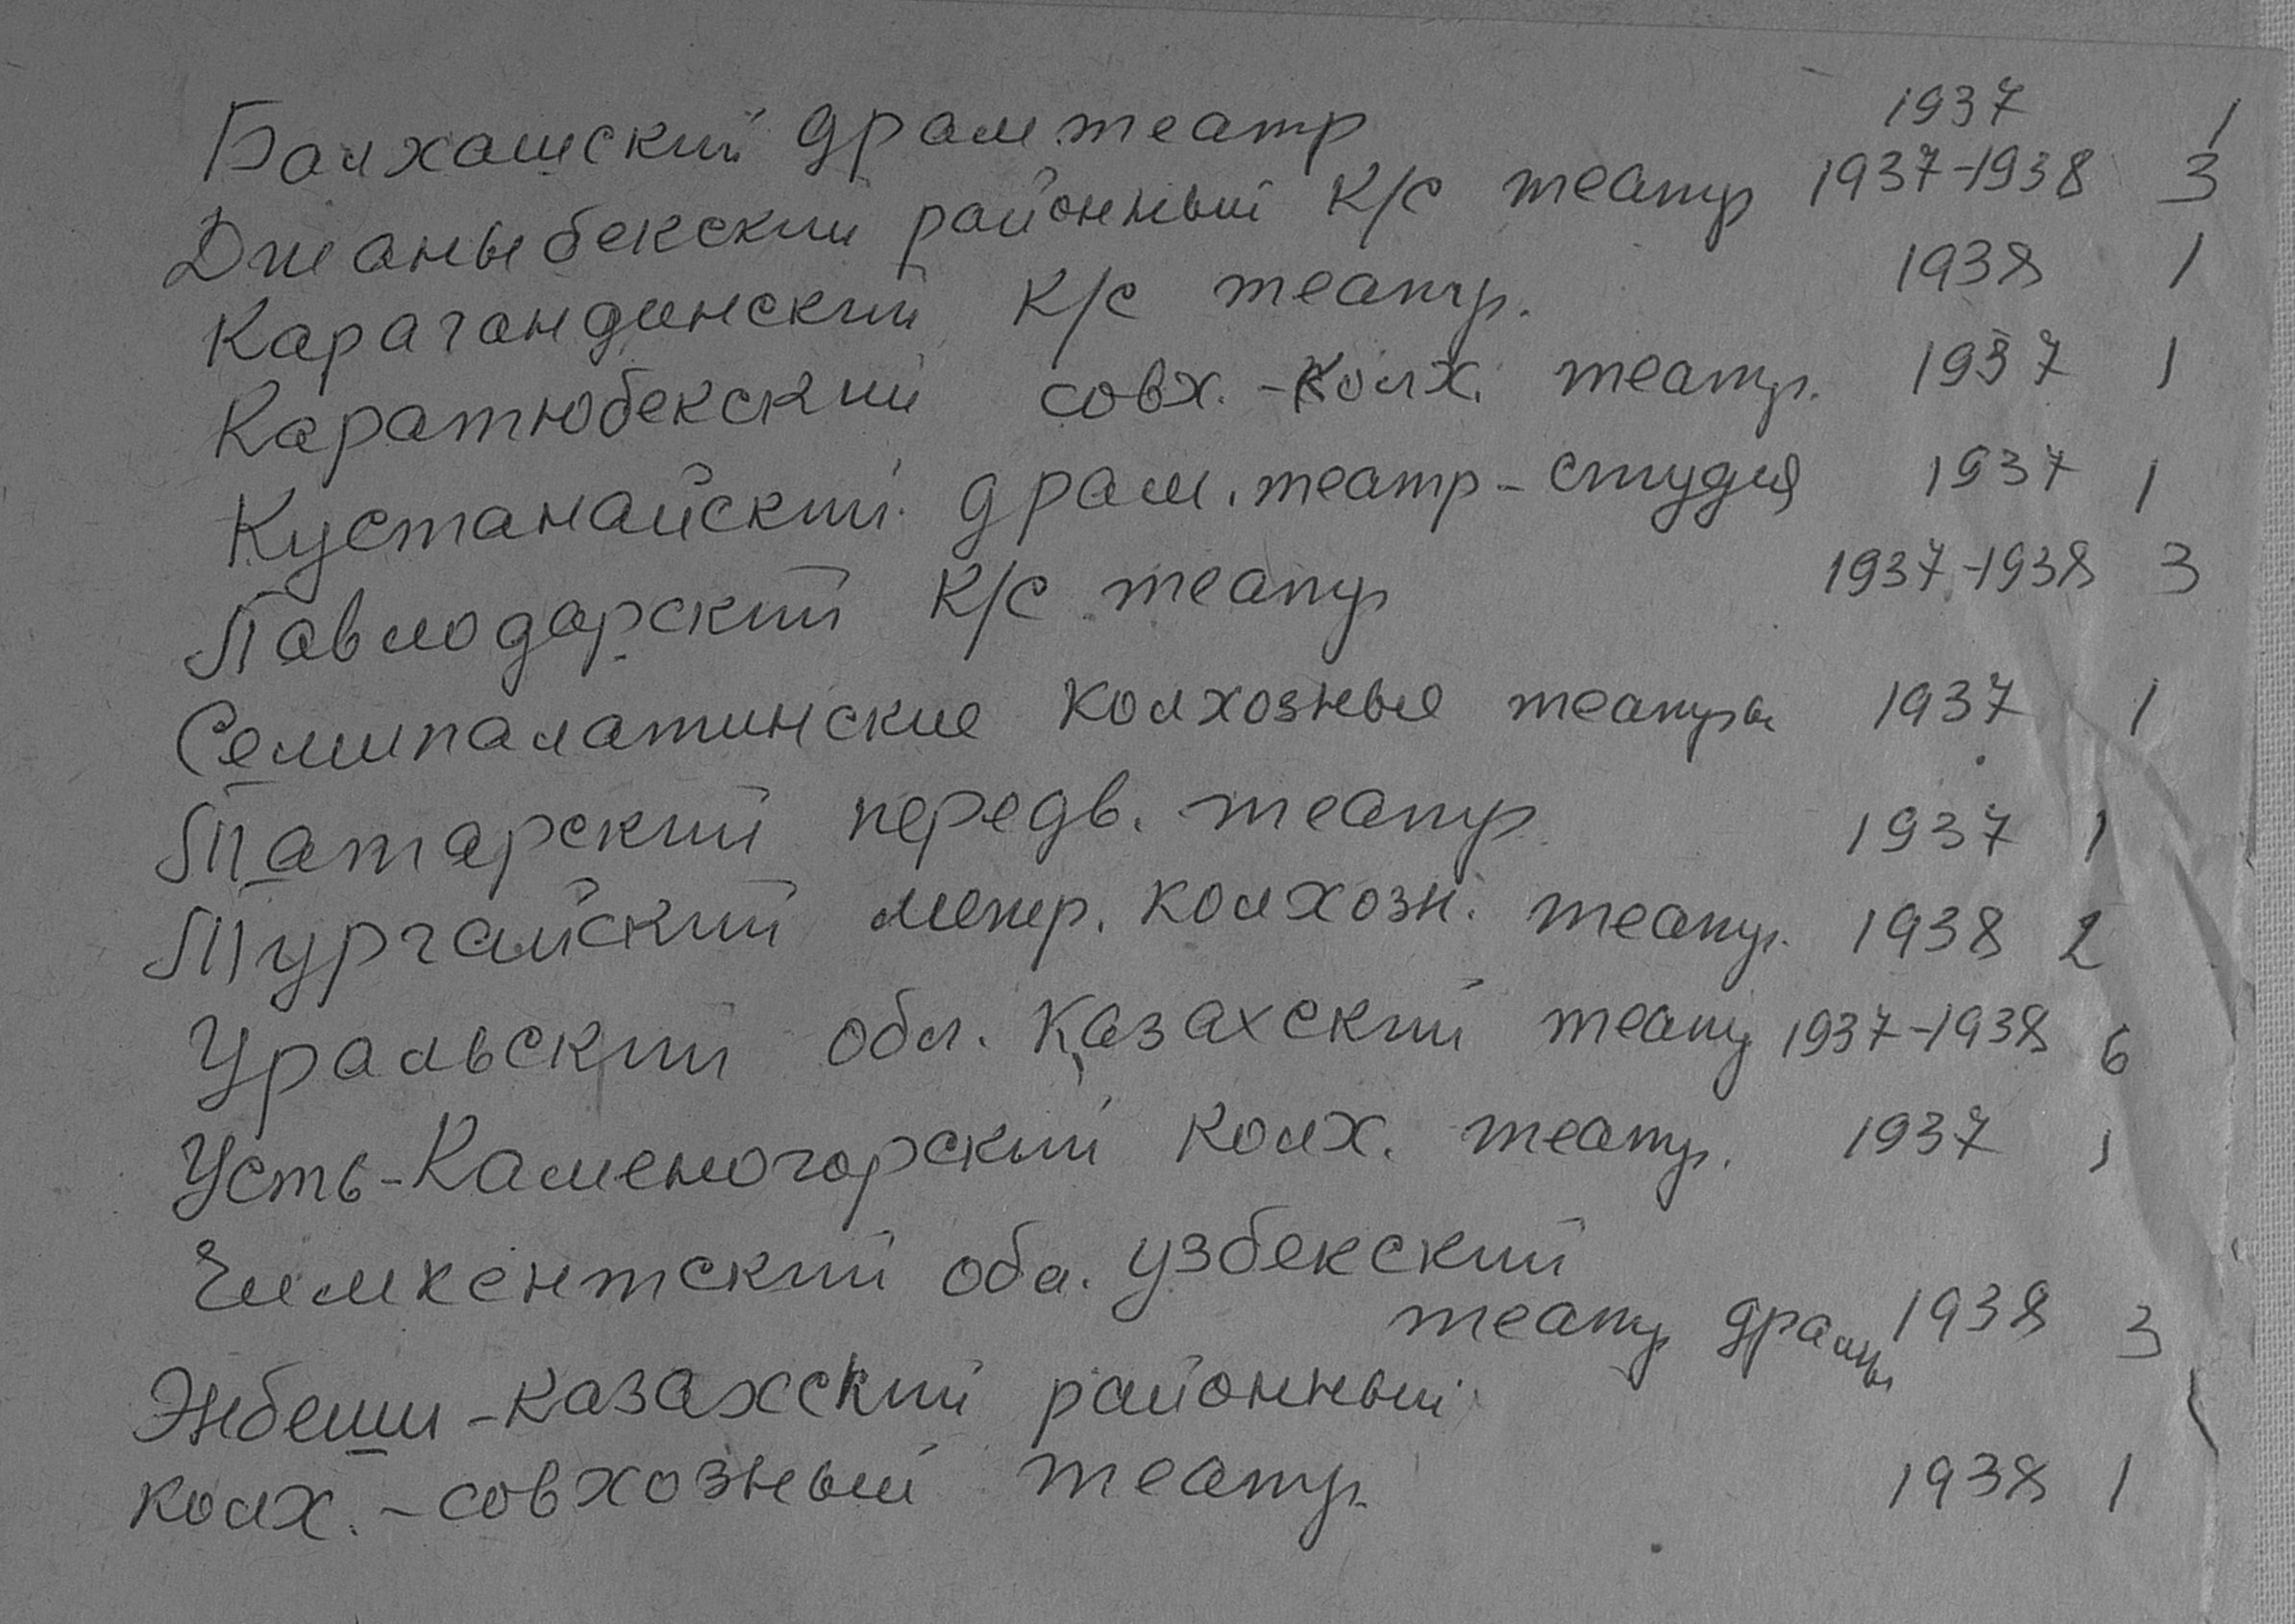 Балхашский драмтеатр 1937 1
Джаныбекский районный к/с театр 1937-1938 3
Карагандинский к/с театр. 1938 1
Каратюбекский совх.-колх. театр. 1937 1
Кустанайский драм. театр-студия 1937 1
Павлодарский к/с театр 1937-1938 3
Семипалатинские колхозные театры 1937 1
Татарский передв. театр 1937 1
Тургайский колхозн. театр. 1938 2
Уральский обл. казахский театр 1937-1938 6
Усть-Каменогорский колх. театр. 1937 1
Чимкентский обл. узбекский
театр драмы 1938 3
Энбеши-казахский районный
колх.-совхозный театр 1938 1